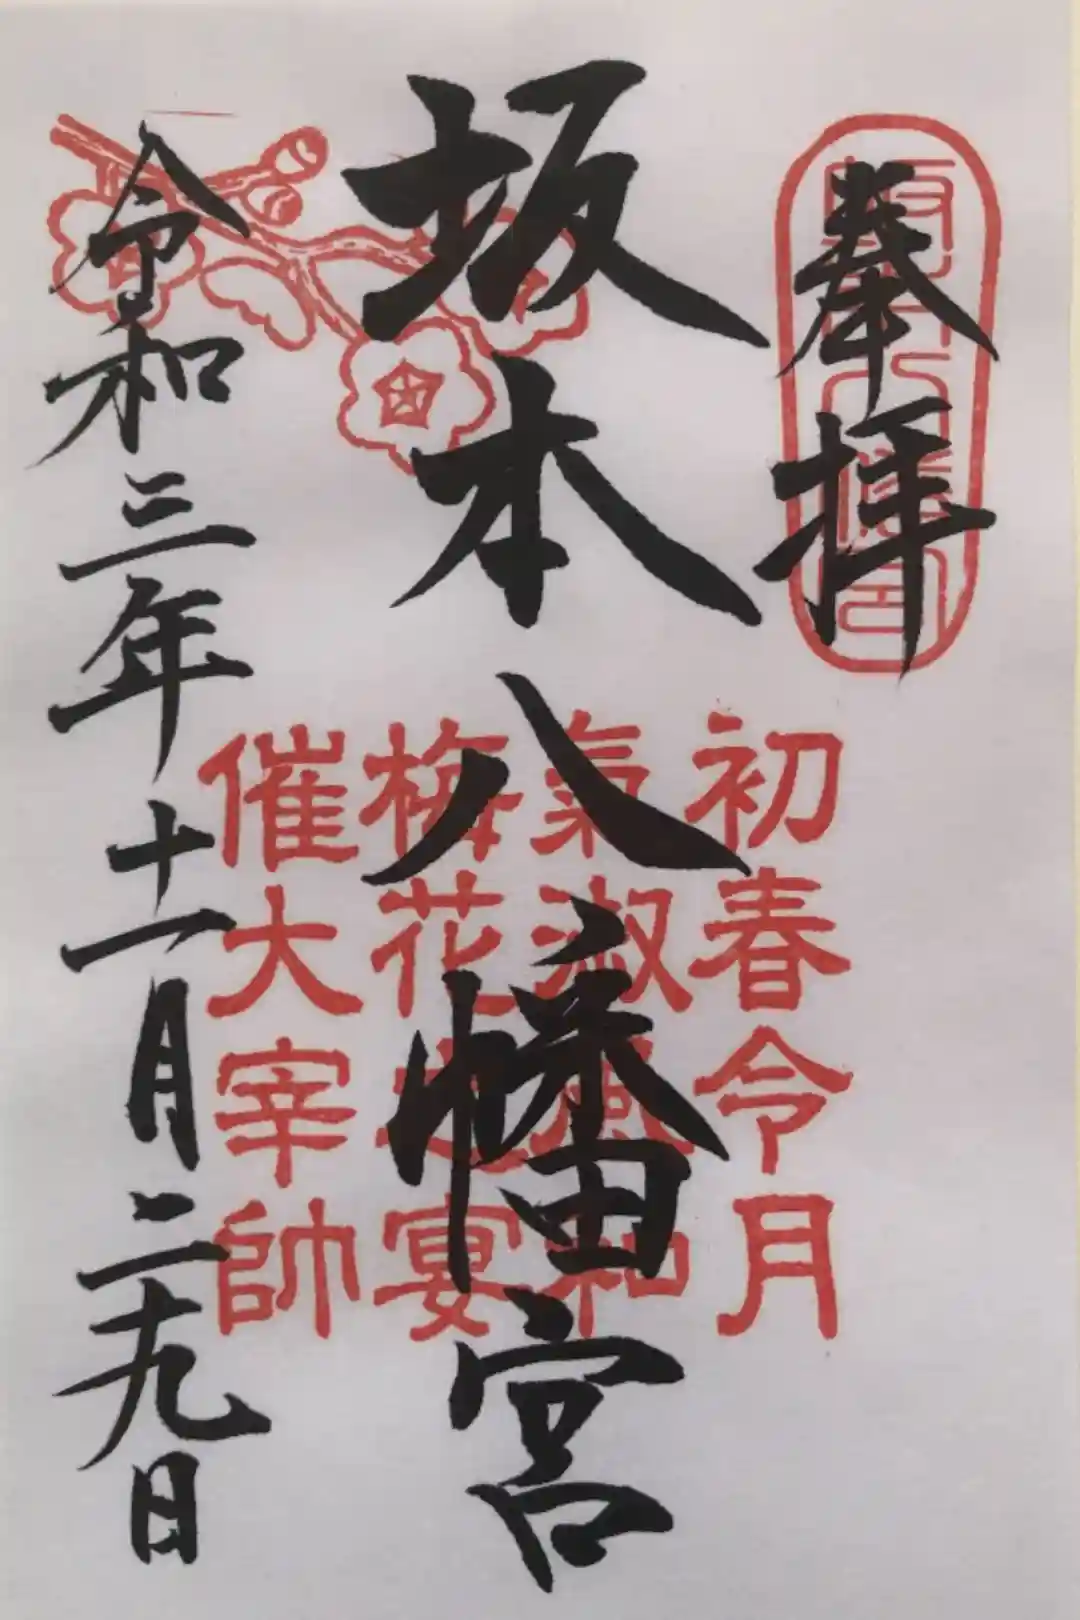 奉拝
坂本八幡宮
令和三年十一月二十九日
初春令月
氣淑風和
梅花之宴
催大宰帥